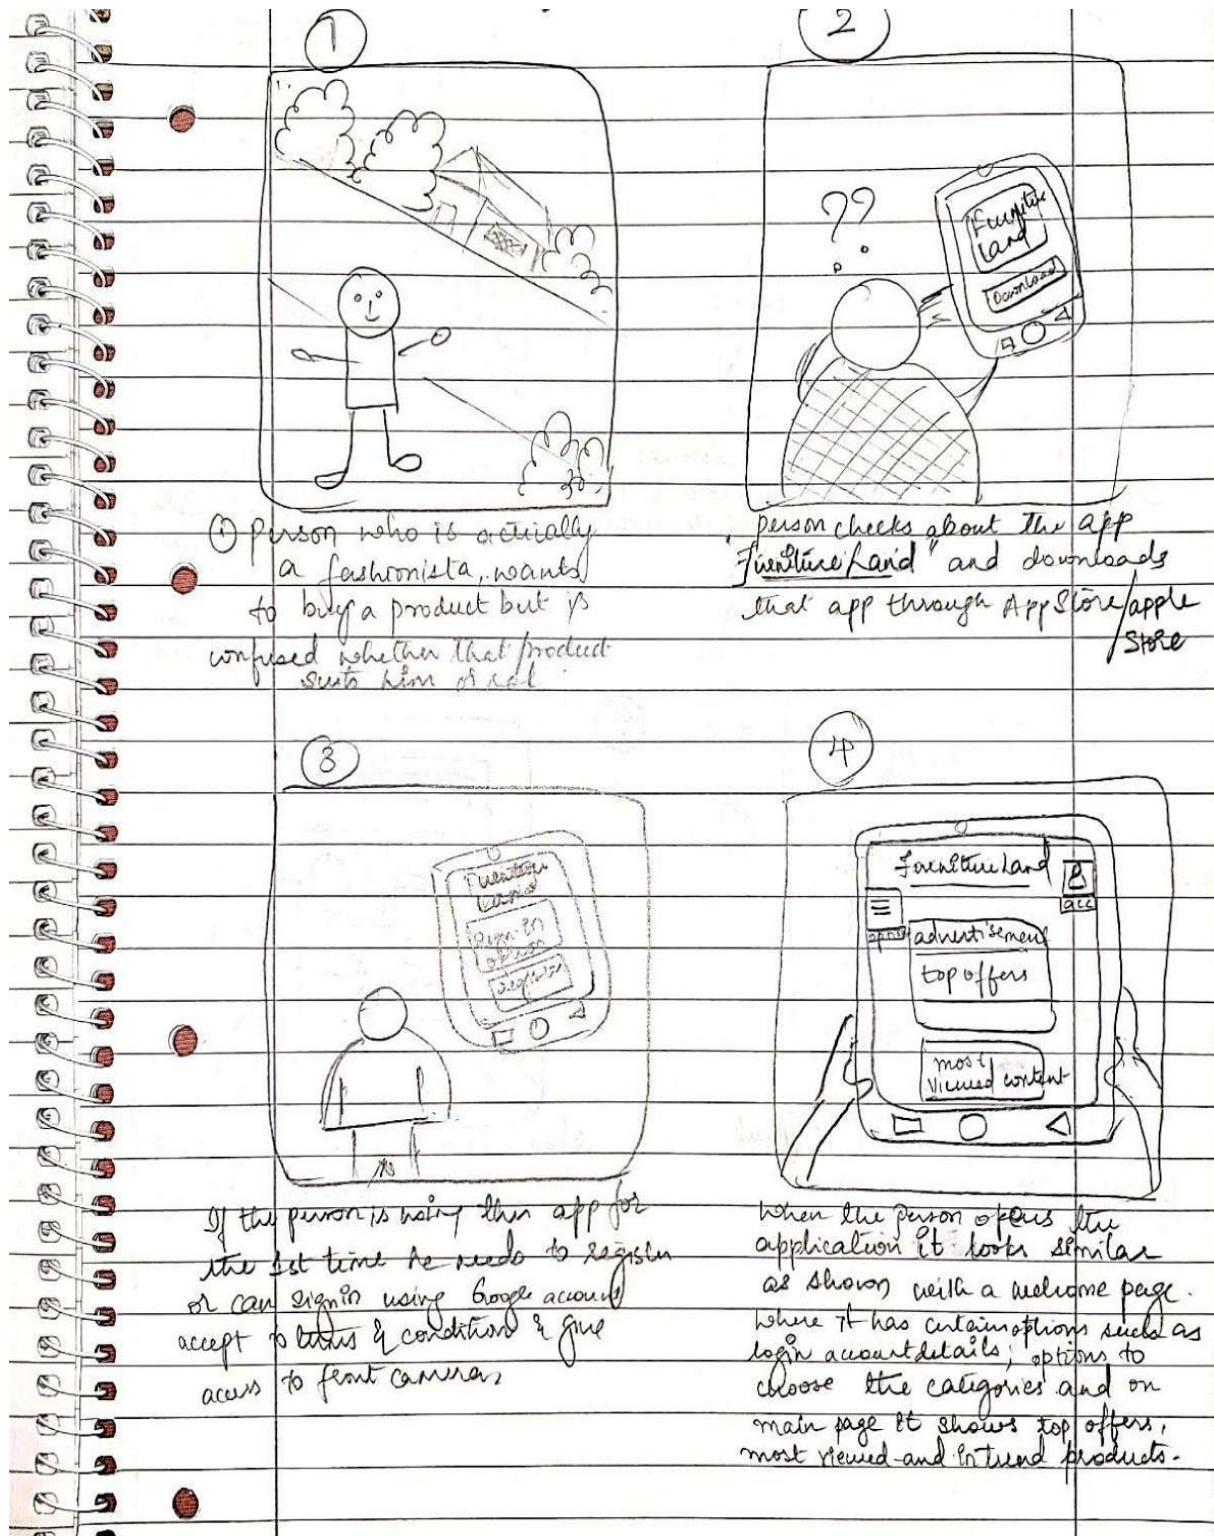 1
2
??
Furniture
Land
Download
① Person who is actually
a fashionista, wants
to buy a product but is
confused whether that product
suits him or not
person checks about the app
"Furniture Land" and downloads
that app through App Store/apple
Store
3
4
Furniture
Land
Sign-in
option
register
Furniture Land
acc
advertisement
top offers
most
viewed content
If the person is using this app for
the 1st time he needs to register
or can signin using Google account
accept to terms & condition & give
access to front camera,
When the person opens the
application it looks similar
as shown with a welcome page.
where it has certain options such as
login account details; options to
choose the categories and on
main page it shows top offers,
most viewed and in trend products.